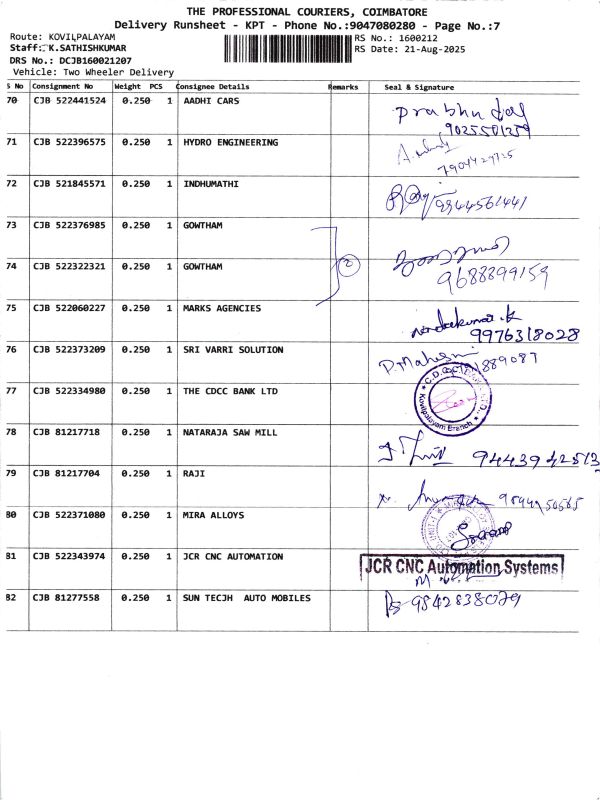 THE PROFESSIONAL COURIERS, COIMBATORE
Delivery Runsheet - KPT - Phone No.:9047080280 - Page No.:7
Route: KOVILPALAYAM
RS No.: 1600212
Staff: K.SATHISHKUMAR
RS Date: 21-Aug-2025
DRS No.: DCJB160021207
Vehicle: Two Wheeler Delivery
S No Consignment No Weight PCS Consignee Details Remarks Seal & Signature
70 CJB 522441524 0.250 1 AADHI CARS Prabhu
71 CJB 522396575 0.250 1 HYDRO ENGINEERING
72 CJB 521845571 0.250 1 INDHUMATHI 9944561441
73 CJB 522376985 0.250 1 GOWTHAM
74 CJB 522322321 0.250 1 GOWTHAM 2 9688899159
75 CJB 522060227 0.250 1 MARKS AGENCIES nandakumar.k
9976318028
76 CJB 522373209 0.250 1 SRI VARRI SOLUTION P.Mahesh
77 CJB 522334980 0.250 1 THE CDCC BANK LTD Kovilpalayam Branch
78 CJB 81217718 0.250 1 NATARAJA SAW MILL 9443942513
79 CJB 81217704 0.250 1 RAJI
80 CJB 522371080 0.250 1 MIRA ALLOYS
81 CJB 522343974 0.250 1 JCR CNC AUTOMATION JCR CNC Automation Systems
82 CJB 81277558 0.250 1 SUN TECJH AUTO MOBILES 9842838079